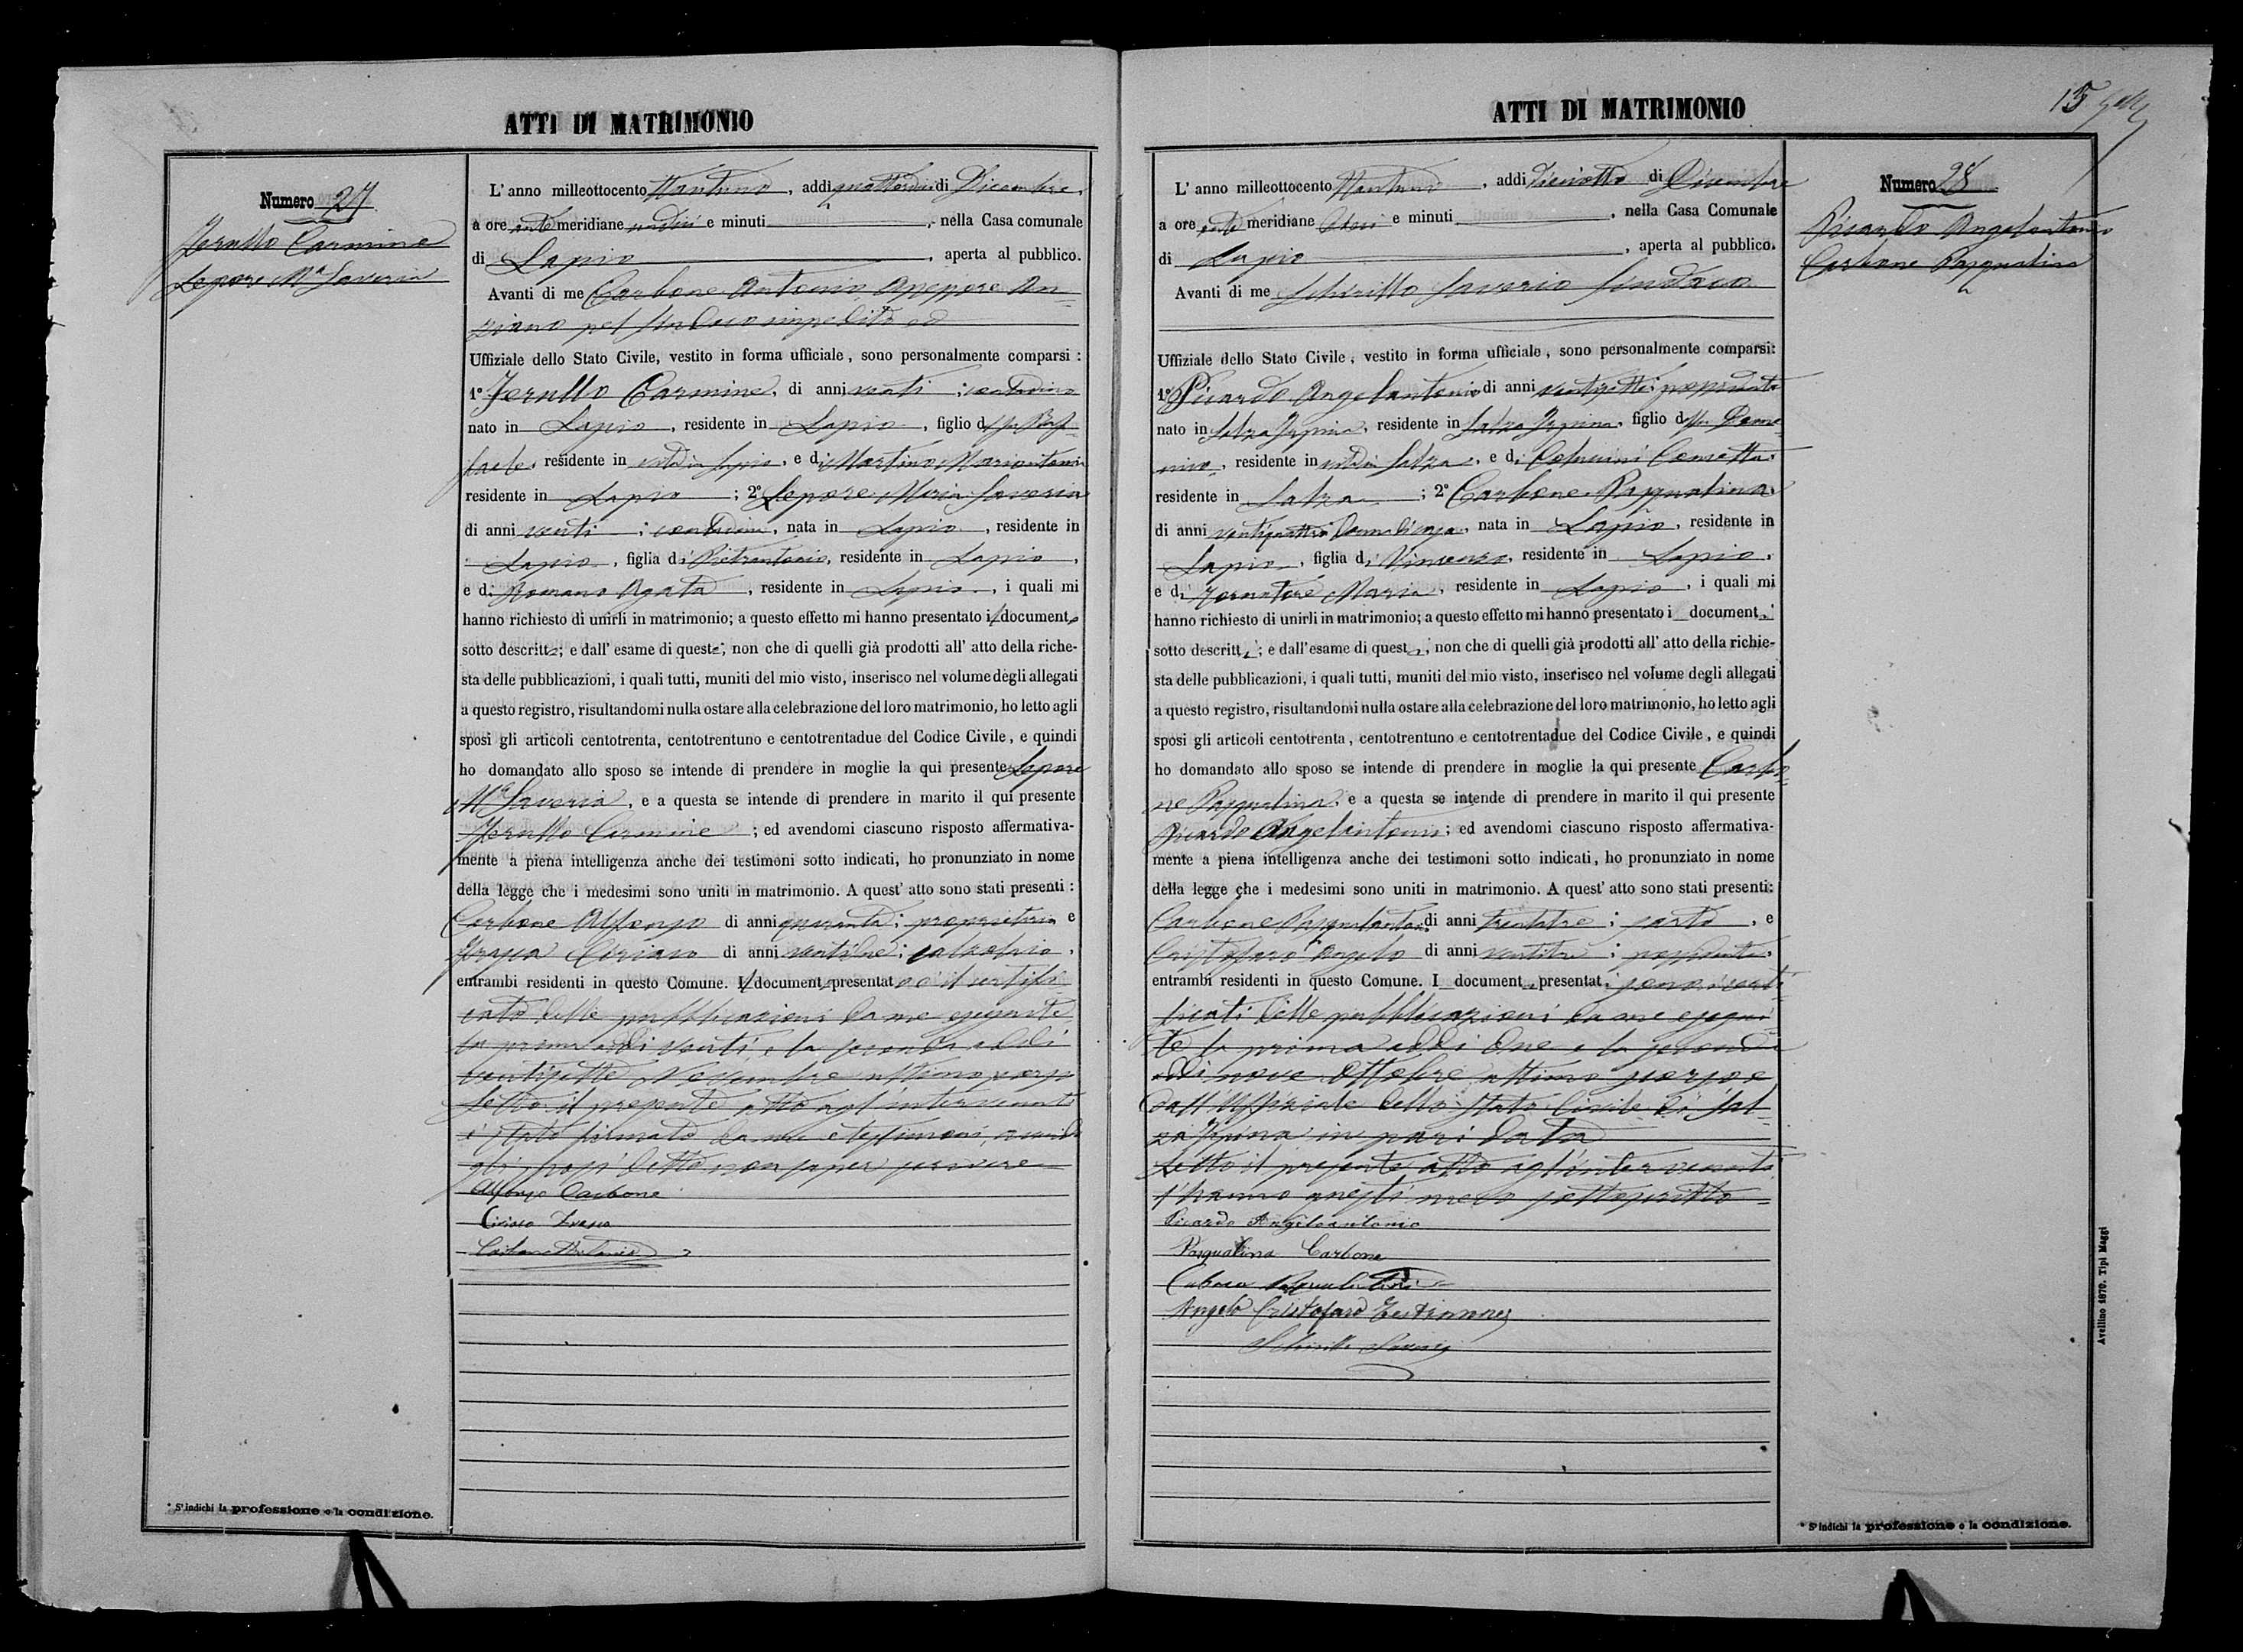 ATTI DI MATRIMONIO
Numero 27
Jerullo Carmine
Lepore Mª Saveria
L'anno milleottocento settantuno, addì quattordici di Dicembre,
a ore ante meridiane undici e minuti, nella Casa comunale
di Lapio, aperta al pubblico.
Avanti di me Carbone Antonio Assessore An-
ziano pel Sindaco impedito ed
Uffiziale dello Stato Civile, vestito in forma ufficiale, sono personalmente comparsi:
1º Jerullo Carmine, di anni venti; contadino
nato in Lapio, residente in Lapio, figlio di fu Raf-
faele, residente in vita in Lapio, e di Martino Mariantonia
residente in Lapio; 2º Lepore Maria Saveria
di anni venti; contadina, nata in Lapio, residente in
Lapio, figlia di Pietrantonio, residente in Lapio,
e di Romano Agata, residente in Lapio, i quali mi
hanno richiesto di unirli in matrimonio; a questo effetto mi hanno presentato il documento
sotto descritto; e dall'esame di questo; non che di quelli già prodotti all'atto della riche-
sta delle pubblicazioni, i quali tutti, muniti del mio visto, inserisco nel volume degli allegati
a questo registro, risultandomi nulla ostare alla celebrazione del loro matrimonio, ho letto agli
sposi gli articoli centotrenta, centotrentuno e centotrentadue del Codice Civile, e quindi
ho domandato allo sposo se intende di prendere in moglie la qui presente Lepore
Mª Saveria, e a questa se intende di prendere in marito il qui presente
Jerullo Carmine; ed avendomi ciascuno risposto affermativa-
mente a piena intelligenza anche dei testimoni sotto indicati, ho pronunziato in nome
della legge che i medesimi sono uniti in matrimonio. A quest'atto sono stati presenti:
Carbone Alfonso di anni quaranta; proprietario e
Ciriaco di anni ventidue; calzolaio,
entrambi residenti in questo Comune. Il documento presentato è il certifi-
cato delle pubblicazioni da me eseguite
la prima addì venti, e la seconda addì
ventisette Novembre ultimo scorso
Letto il presente atto agl'intervenuti
è stato firmato da me e testimoni, avendo
gli sposi detto non saper scrivere
Alfonso Carbone
Ciriaco
Carbone Antonio
* S'indichi la professione e la condizione.
ATTI DI MATRIMONIO
15
Numero 28
Picardo Angelantonio
Carbone Pasqualina
L'anno milleottocento settantuno, addì dieciotto di Dicembre
a ore ante meridiane dieci e minuti, nella Casa Comunale
di Lapio, aperta al pubblico.
Avanti di me Schirillo Saverio Sindaco
Uffiziale dello Stato Civile, vestito in forma ufficiale, sono personalmente comparsi:
1º Picardo Angelantonio di anni ventisette; possidente
nato in Salza Irpina, residente in Salza Irpina, figlio di fu Dome-
nico, residente in vita in Salza, e di Concetta,
residente in Salza; 2º Carbone Pasqualina,
di anni ventiquattro donna di casa, nata in Lapio, residente in
Lapio, figlia di Vincenzo, residente in Lapio,
e di Fornatore Maria, residente in Lapio, i quali mi
hanno richiesto di unirli in matrimonio; a questo effetto mi hanno presentato i documenti
sotto descritti; e dall'esame di questi; non che di quelli già prodotti all'atto della richie-
sta delle pubblicazioni, i quali tutti, muniti del mio visto, inserisco nel volume degli allegati
a questo registro, risultandomi nulla ostare alla celebrazione del loro matrimonio, ho letto agli
sposi gli articoli centotrenta, centotrentuno e centotrentadue del Codice Civile, e quindi
ho domandato allo sposo se intende di prendere in moglie la qui presente Carbo-
ne Pasqualina, e a questa se intende di prendere in marito il qui presente
Picardo Angelantonio; ed avendomi ciascuno risposto affermativa-
mente a piena intelligenza anche dei testimoni sotto indicati, ho pronunziato in nome
della legge che i medesimi sono uniti in matrimonio. A quest'atto sono stati presenti:
Carbone Pasqualantonio di anni trentatre; sarto, e
Cristofaro Angelo di anni ventitre; possidente,
entrambi residenti in questo Comune. I documenti presentati sono i certi-
ficati delle pubblicazioni da me esegui-
te la prima addì due e la seconda
addì nove Ottobre ultimo scorso e
dall'Uffiziale dello Stato Civile di Sal-
za Irpina in pari data
Letto il presente atto agl'intervenuti
l'hanno questi meco sottoscritto
Picardo Angeloantonio
Pasqualina Carbone
Angelo Cristofaro Testimone
Schirillo Saverio
Avellino 1870. Tipi Maggi
* S'indichi la professione e la condizione.